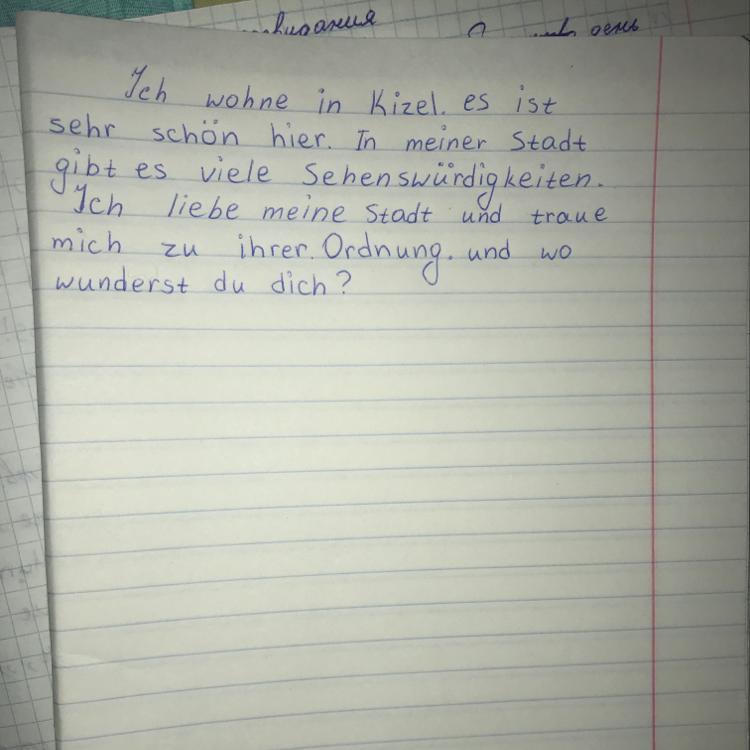 Ich wohne in Kizel. es ist
sehr schön hier. In meiner Stadt
gibt es viele Sehenswürdigkeiten.
Ich liebe meine Stadt und traue
mich zu ihrer. Ordnung. und wo
wunderst du dich?